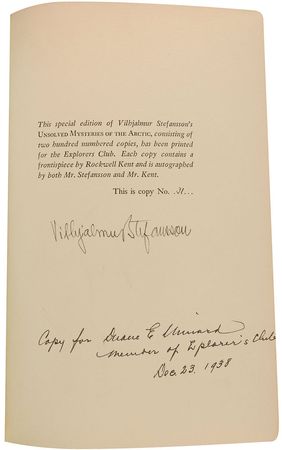 This special edition of Vilhjalmur Stefansson's
UNSOLVED MYSTERIES OF THE ARCTIC, consisting of
two hundred numbered copies, has been printed
for the Explorers Club. Each copy contains a
frontispiece by Rockwell Kent and is autographed
by both Mr. Stefansson and Mr. Kent.
This is copy No.
Vilhjalmur Stefansson
Copy for Duane E
Member of Explorer's Club
Dec. 23, 1938